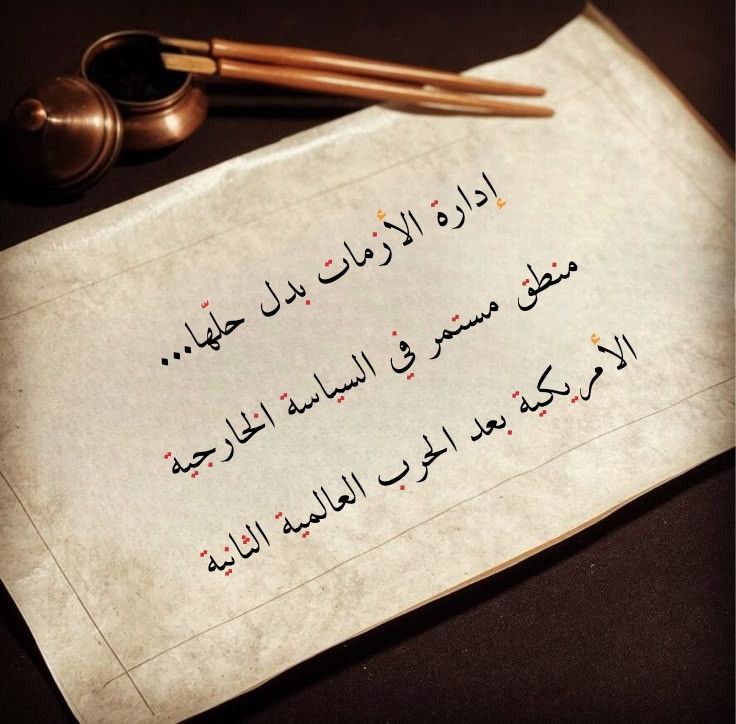 إدارة الأزمات بدل حلّها...
منطق مستمر في السياسة الخارجية
الأمريكية بعد الحرب العالمية الثانية